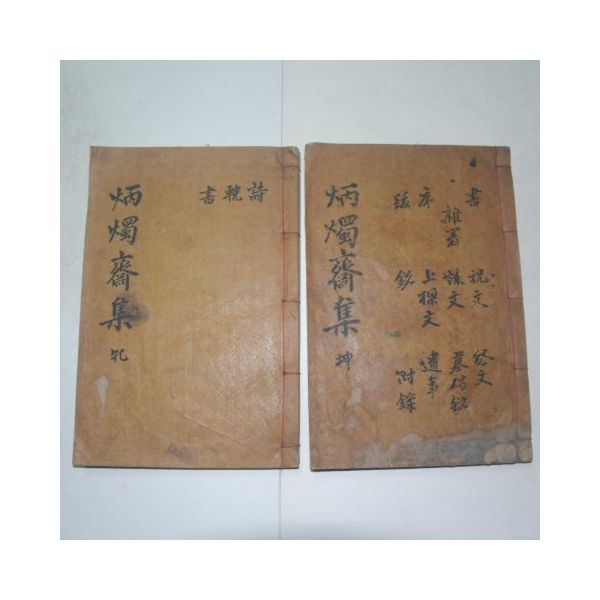 炳燭齋集 乾
詩 輓 書
炳燭齋集 坤
書 祝文 祭文
雜著 誄文 墓碣銘
序 上樑文 遺事
跋 銘 附錄